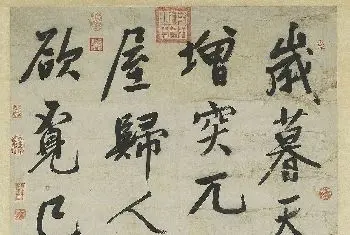 歲暮天
增突兀
屋歸人
欲覓已